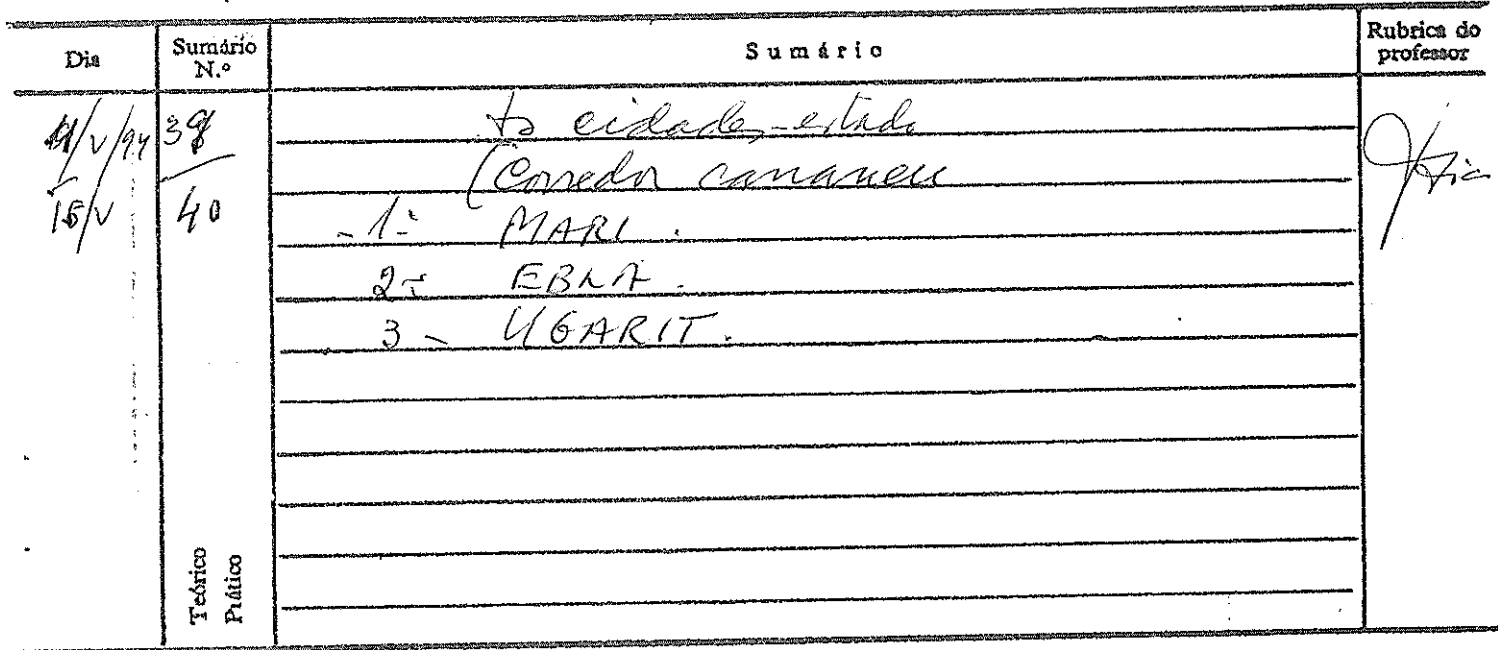 Dia
Sumário N.º
Sumário
Rubrica do professor
11/V/94
39
cidades-estado
(Corredor cananeu
15/V
40
- 1- MARI.
2- EBLA.
3 - UGARIT.
Teórico
Prático